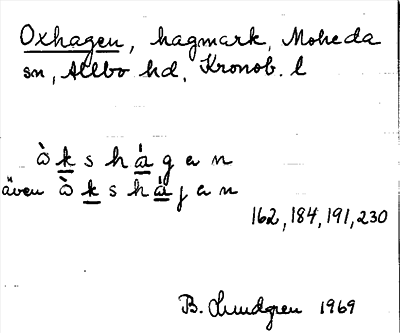 Oxhagen, hagmark, Moheda
sn, Allbo hd, Kronob. l
ò k s h à g e n
även ò k s h à j e n
162, 184, 191, 230
B. Lundgren 1969